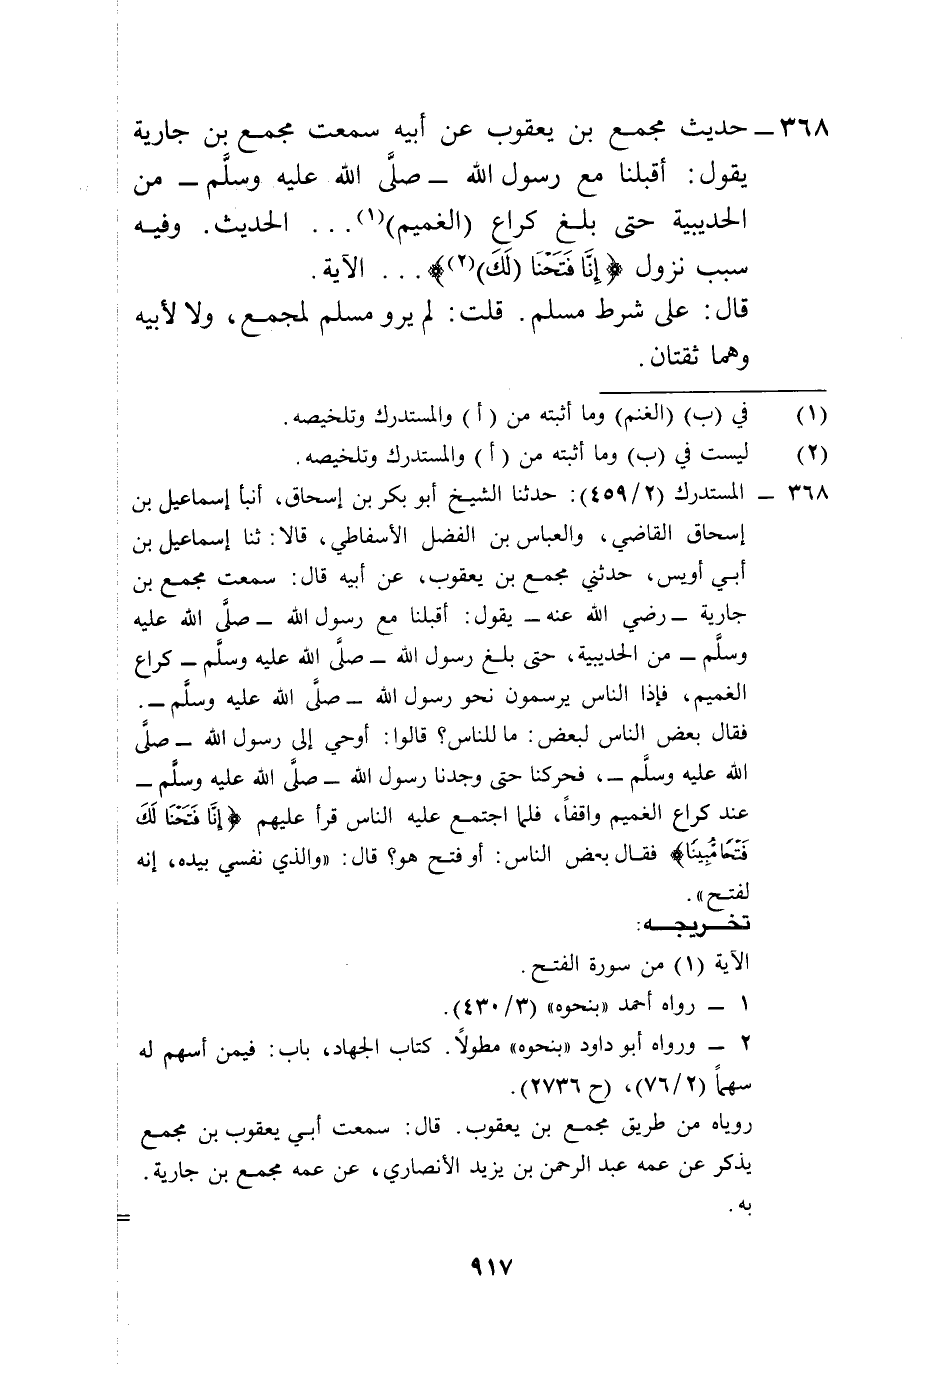 ٣٦٨ ــ حديث مجمع بن يعقوب عن أبيه سمعت مجمع بن جارية
يقول: أقبلنا مع رسول الله ــ صلَّى الله عليه وسلَّم ــ من
الحديبية حتى بلغ كراع (الغميم)(١) ... الحديث. وفيه
سبب نزول ﴿إِنَّا فَتَحْنَا (لَكَ)(٢)﴾ ... الآية.
قال: على شرط مسلم. قلت: لم يرو مسلم لمجمع، ولا لأبيه
وهما ثقتان.
(١) في (ب) (الغنم) وما أثبته من (أ) والمستدرك وتلخيصه.
(٢) ليست في (ب) وما أثبته من (أ) والمستدرك وتلخيصه.
٣٦٨ ــ المستدرك (٤٥٩/٢): حدثنا الشيخ أبو بكر بن إسحاق، أنبأ إسماعيل بن
إسحاق القاضي، والعباس بن الفضل الأسفاطي، قالا: ثنا إسماعيل بن
أبي أويس، حدثني مجمع بن يعقوب، عن أبيه قال: سمعت مجمع بن
جارية ــ رضي الله عنه ــ يقول: أقبلنا مع رسول الله ــ صلَّى الله عليه
وسلَّم ــ من الحديبية، حتى بلغ رسول الله ــ صلَّى الله عليه وسلَّم ــ كراع
الغميم، فإذا الناس يرسمون نحو رسول الله ــ صلَّى الله عليه وسلَّم ــ.
فقال بعض الناس لبعض: ما للناس؟ قالوا: أوحي إلى رسول الله ــ صلَّى
الله عليه وسلَّم ــ، فحركنا حتى وجدنا رسول الله ــ صلَّى الله عليه وسلَّم ــ
عند كراع الغميم واقفاً، فلما اجتمع عليه الناس قرأ عليهم ﴿إِنَّا فَتَحْنَا لَكَ
فَتْحًا مُّبِينًا﴾ فقال بعض الناس: أو فتح هو؟ قال: «والذي نفسي بيده، إنه
لفتح».
تخريجه:
الآية (١) من سورة الفتح.
١ ــ رواه أحمد «بنحوه» (٤٣٠/٣).
٢ ــ ورواه أبو داود «بنحوه» مطولاً. كتاب الجهاد، باب: فيمن أسهم له
سهماً (٧٦/٢)، (ح ٢٧٣٦).
روياه من طريق مجمع بن يعقوب. قال: سمعت أبي يعقوب بن مجمع
يذكر عن عمه عبد الرحمن بن يزيد الأنصاري، عن عمه مجمع بن جارية.
به.
=
٩١٧